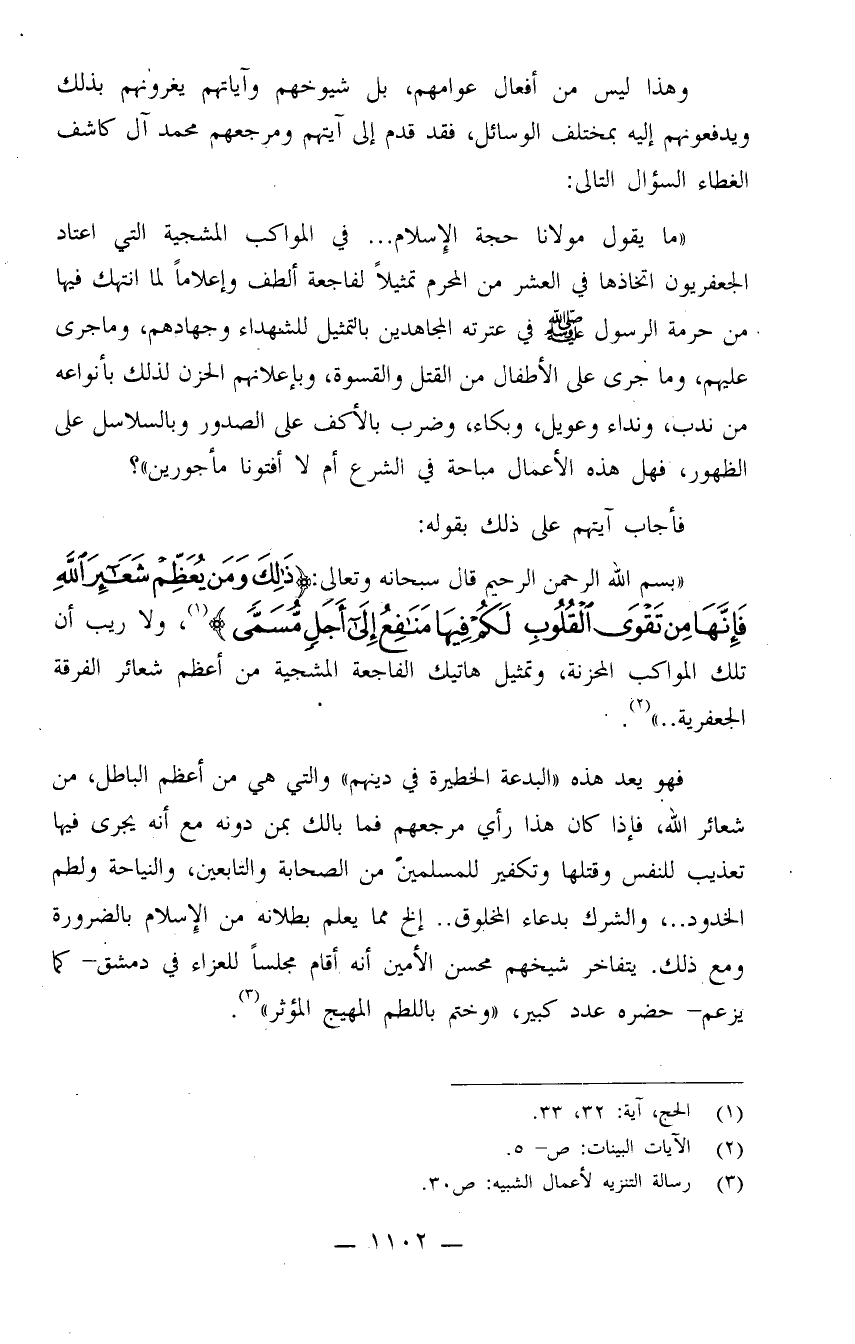 وهذا ليس من أفعال عوامهم، بل شيوخهم وآياتهم يغرونهم بذلك
ويدفعونهم إليه بمختلف الوسائل، فقد قدم إلى آيتهم ومرجعهم محمد آل كاشف
الغطاء السؤال التالى:
«ما يقول مولانا حجة الإسلام... في المواكب المشجية التي اعتاد
الجعفريون اتخاذها في العشر من المحرم تمثيلاً لفاجعة ألطف وإعلاماً لما انتهك فيها
من حرمة الرسول ﷺ في عترته المجاهدين بالتمثيل للشهداء وجهادهم، وماجرى
عليهم، وما جرى على الأطفال من القتل والقسوة، وبإعلانهم الحزن لذلك بأنواعه
من ندب، ونداء وعويل، وبكاء، وضرب بالأكف على الصدور وبالسلاسل على
الظهور، فهل هذه الأعمال مباحة في الشرع أم لا أفتونا مأجورين»؟
فأجاب آيتهم على ذلك بقوله:
«بسم الله الرحمن الرحيم قال سبحانه وتعالى: ﴿ذَٰلِكَ وَمَن يُعَظِّمْ شَعَٰٓئِرَ ٱللَّهِ
فَإِنَّهَا مِن تَقْوَى ٱلْقُلُوبِ لَكُمْ فِيهَا مَنَٰفِعُ إِلَىٰٓ أَجَلٍ مُّسَمًّى﴾(١)، ولا ريب أن
تلك المواكب المحزنة، وتمثيل هاتيك الفاجعة المشجية من أعظم شعائر الفرقة
الجعفرية..»(٢).
فهو يعد هذه «البدعة الخطيرة في دينهم» والتي هي من أعظم الباطل، من
شعائر الله، فإذا كان هذا رأي مرجعهم فما بالك بمن دونه مع أنه يجرى فيها
تعذيب للنفس وقتلها وتكفير للمسلمين من الصحابة والتابعين، والنياحة ولطم
الخدود..، والشرك بدعاء المخلوق.. إلخ مما يعلم بطلانه من الإسلام بالضرورة
ومع ذلك. يتفاخر شيخهم محسن الأمين أنه أقام مجلساً للعزاء في دمشق– كما
يزعم– حضره عدد كبير، «وختم باللطم المهيج المؤثر»(٣).
(١) الحج، آية: ٣٢، ٣٣.
(٢) الآيات البينات: ص– ٥.
(٣) رسالة التنزيه لأعمال الشبيه: ص٣٠.
– ١١٠٢ –